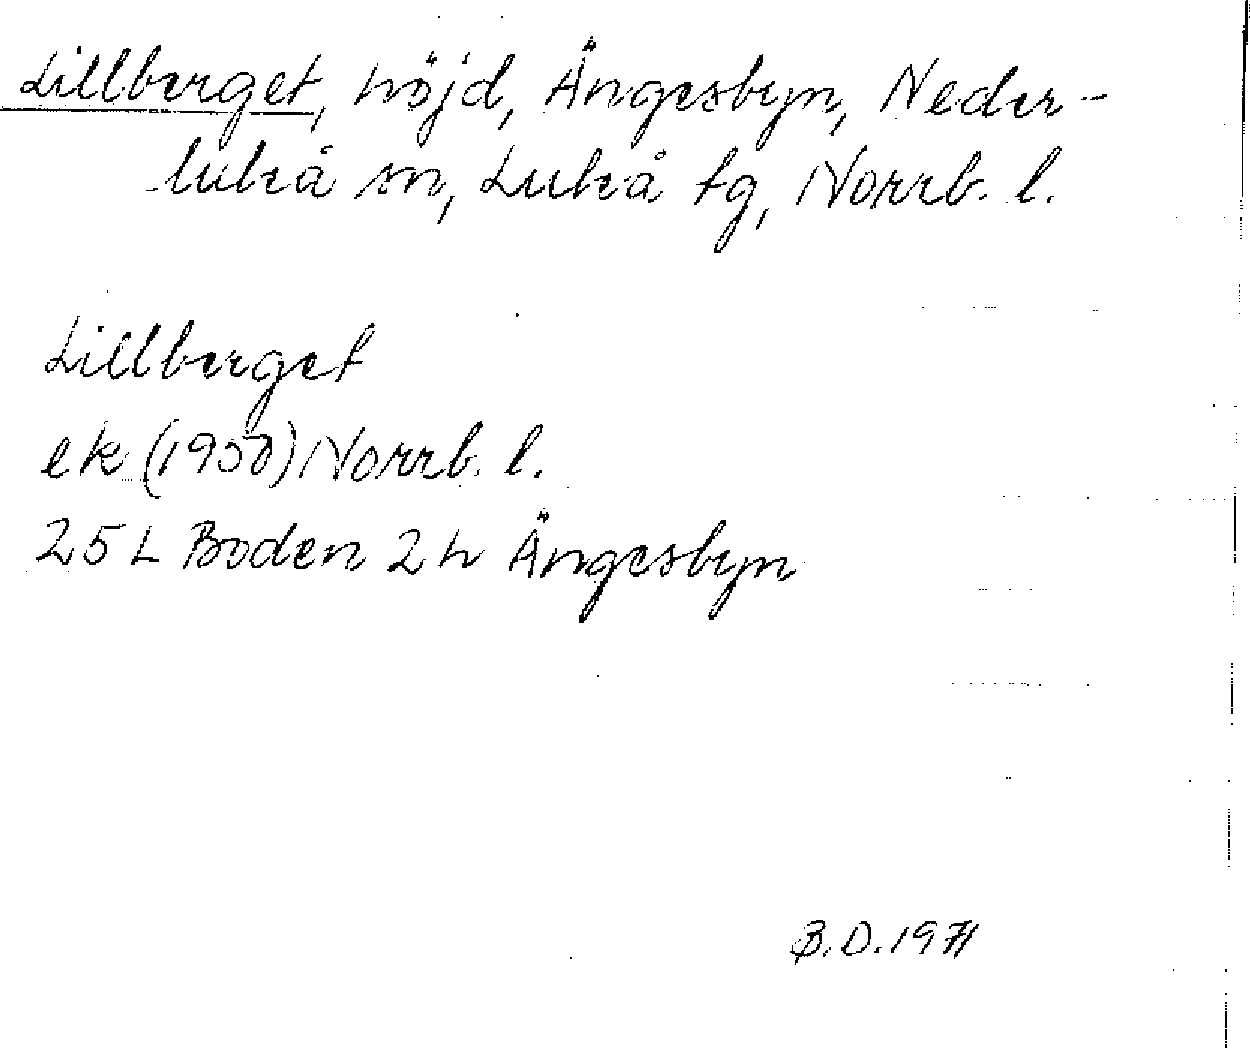 Lillberget, höjd, Ängesbyn, Neder-
luleå sn, Luleå tg, Norrb. l.
Lillberget
ek (1950) Norrb. l.
25 L Boden 2 h Ängesbyn
B.D. 1971